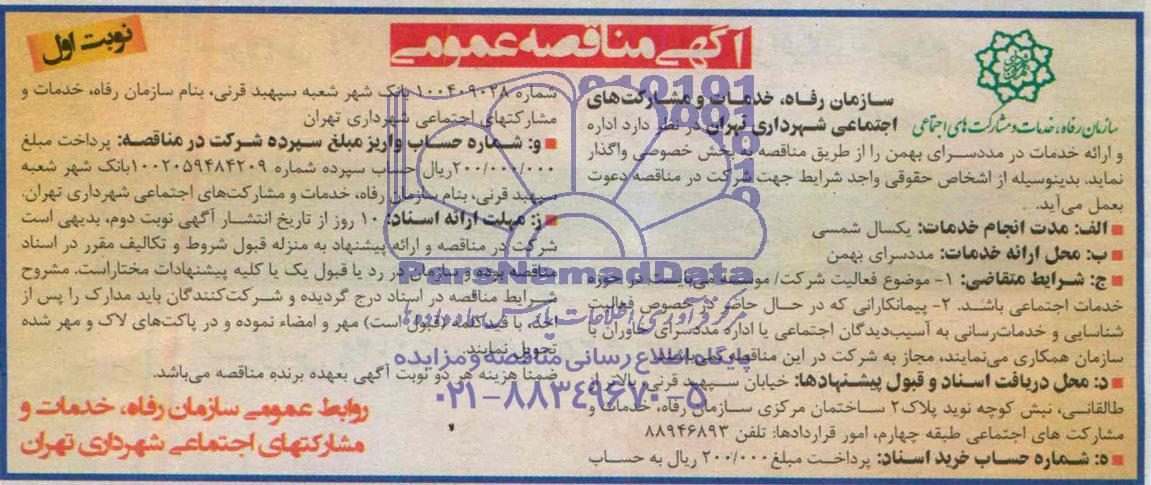 آگهی مناقصه عمومی
نوبت اول
سازمان رفاه، خدمات و مشارکت‌های اجتماعی
سازمان رفاه، خدمات و مشارکت‌های
اجتماعی شهرداری تهران در نظر دارد اداره
و ارائه خدمات در مددسرای بهمن را از طریق مناقصه به بخش خصوصی واگذار
نماید. بدینوسیله از اشخاص حقوقی واجد شرایط جهت شرکت در مناقصه دعوت
بعمل می‌آید.
الف: مدت انجام خدمات: یکسال شمسی
ب: محل ارائه خدمات: مددسرای بهمن
ج: شرایط متقاضی: ۱- موضوع فعالیت شرکت/ موسسه می‌بایست در حوزه
خدمات اجتماعی باشد. ۲- پیمانکارانی که در حال حاضر در خصوص فعالیت
شناسایی و خدمات‌رسانی به آسیب‌دیدگان اجتماعی یا اداره مددسرای خاوران با
سازمان همکاری می‌نمایند، مجاز به شرکت در این مناقصه نمی‌باشند.
د: محل دریافت اسناد و قبول پیشنهادها: خیابان سپهبد قرنی، بالاتر از
طالقانی، نبش کوچه نوید پلاک۲ ساختمان مرکزی سازمان رفاه، خدمات و
مشارکت های اجتماعی طبقه چهارم، امور قراردادها: تلفن ۸۸۹۴۶۸۹۳
ه: شماره حساب خرید اسناد: پرداخت مبلغ ۲۰۰/۰۰۰ ریال به حساب
شماره ۱۰۰۴۰۹۰۲۸ بانک شهر شعبه سپهبد قرنی، بنام سازمان رفاه، خدمات و
مشارکتهای اجتماعی شهرداری تهران
و: شماره حساب واریز مبلغ سپرده شرکت در مناقصه: پرداخت مبلغ
۲۰۰/۰۰۰/۰۰۰ریال حساب سپرده شماره ۱۰۰۲۰۵۹۴۸۴۲۰۹بانک شهر شعبه
سپهبد قرنی، بنام سازمان رفاه، خدمات و مشارکت‌های اجتماعی شهرداری تهران.
ز: مهلت ارائه اسناد: ۱۰ روز از تاریخ انتشار آگهی نوبت دوم، بدیهی است
شرکت در مناقصه و ارائه پیشنهاد به منزله قبول شروط و تکالیف مقرر در اسناد
مناقصه بوده و سازمان در رد یا قبول یک یا کلیه پیشنهادات مختار است. مشروح
شرایط مناقصه در اسناد درج گردیده و شرکت‌کنندگان باید مدارک را پس از
اخذ، با قید کلمه (قبول است) مهر و امضاء نموده و در پاکت‌های لاک و مهر شده
تحویل نمایند.
ضمنا هزینه هر دو نوبت آگهی بعهده برنده مناقصه می‌باشد.
روابط عمومی سازمان رفاه، خدمات و
مشارکتهای اجتماعی شهرداری تهران
ParsNamadData
مرکز فرآوری اطلاعات پارس نماد داده‌ها
پایگاه اطلاع رسانی مناقصه و مزایده
۰۲۱-۸۸۳۴۹۶۷۰-۵